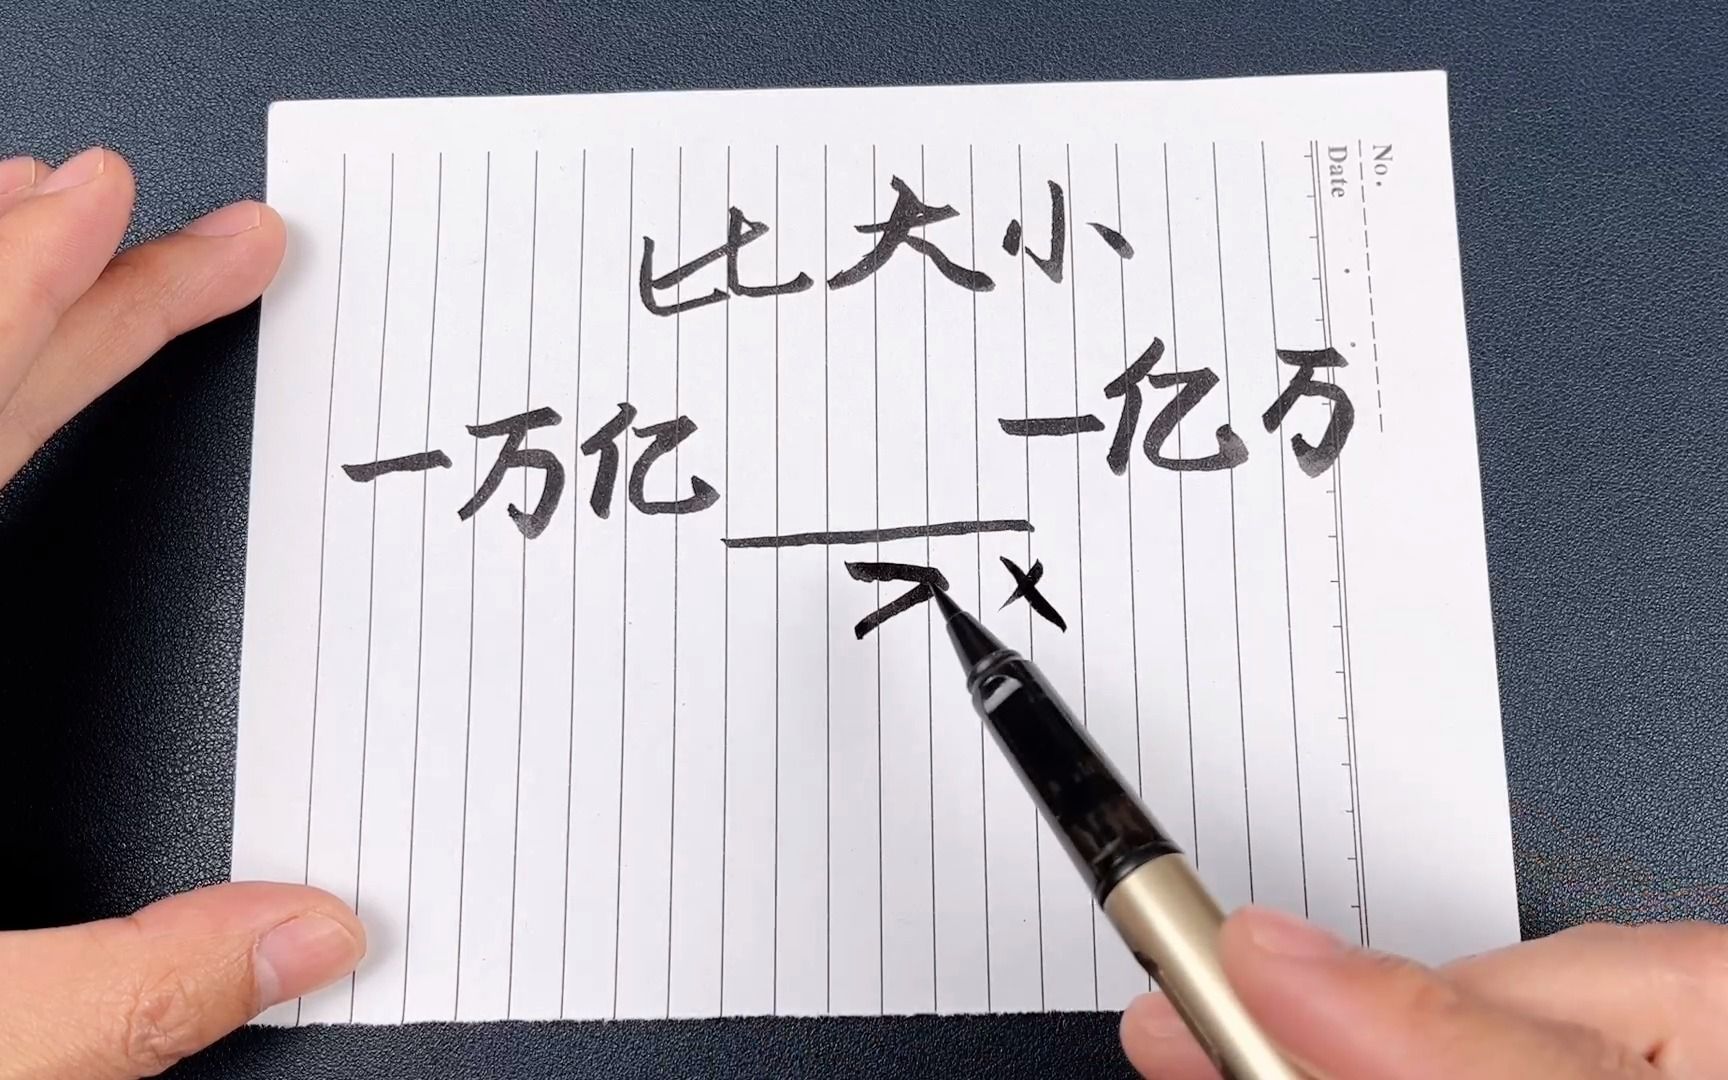 比大小
一万亿 一亿万
> ×
No.
Date